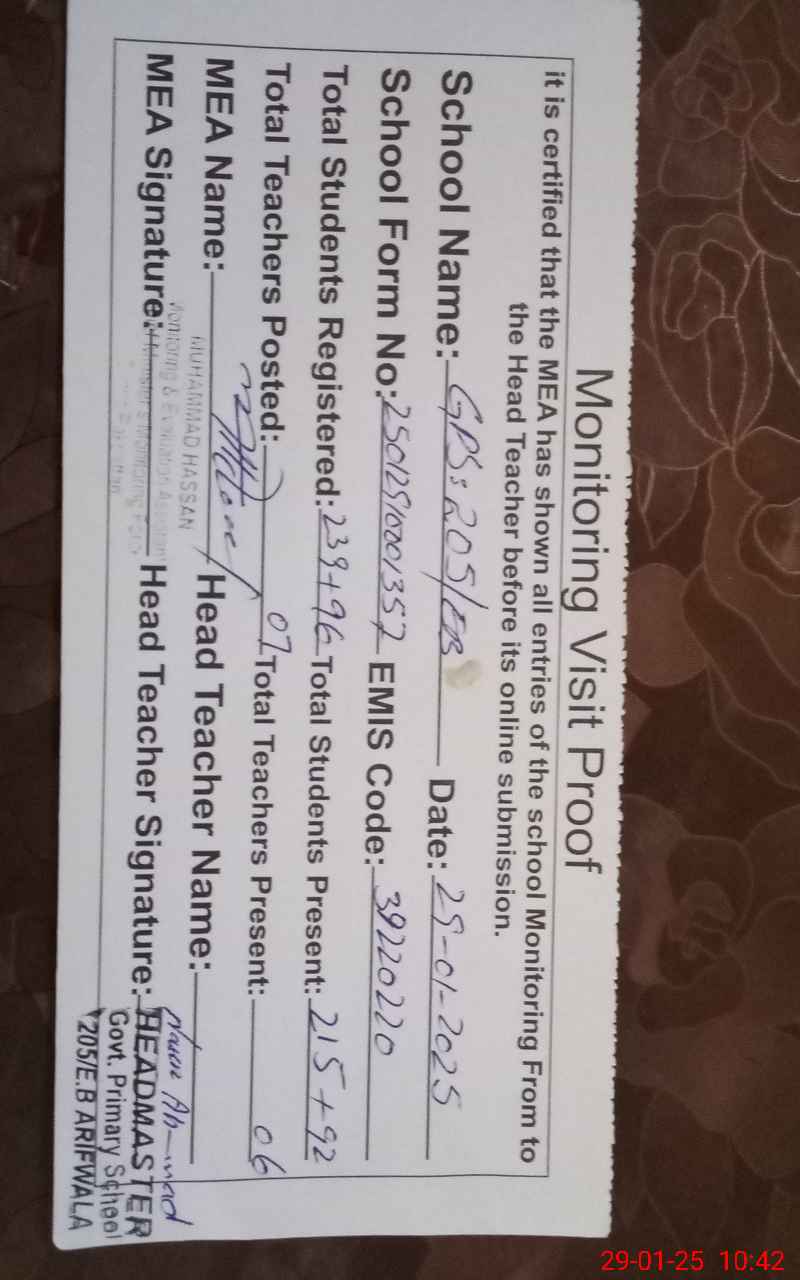 Monitoring Visit Proof
it is certified that the MEA has shown all entries of the school Monitoring From to
the Head Teacher before its online submission.
School Name: GPS: 205/EB Date: 29-01-2025
School Form No: EMIS Code: 39220220
Total Students Registered: 239+96 Total Students Present: 215+92
Total Teachers Posted: 07 Total Teachers Present: 06
MEA Name: Head Teacher Name:
MUHAMMAD HASSAN
Monitoring & Evaluation Assistant
MEA Signature: Head Teacher Signature: HEADMASTER
Govt. Primary School
205/E.B ARIFWALA
29-01-25 10:42